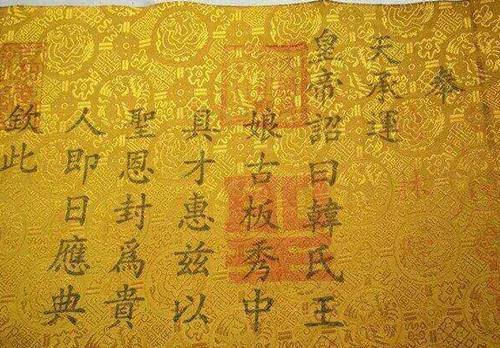 奉
天承運
皇帝詔曰韓氏王
娘古板秀中
具才惠兹以
聖恩封爲貴
人即日應典
欽此